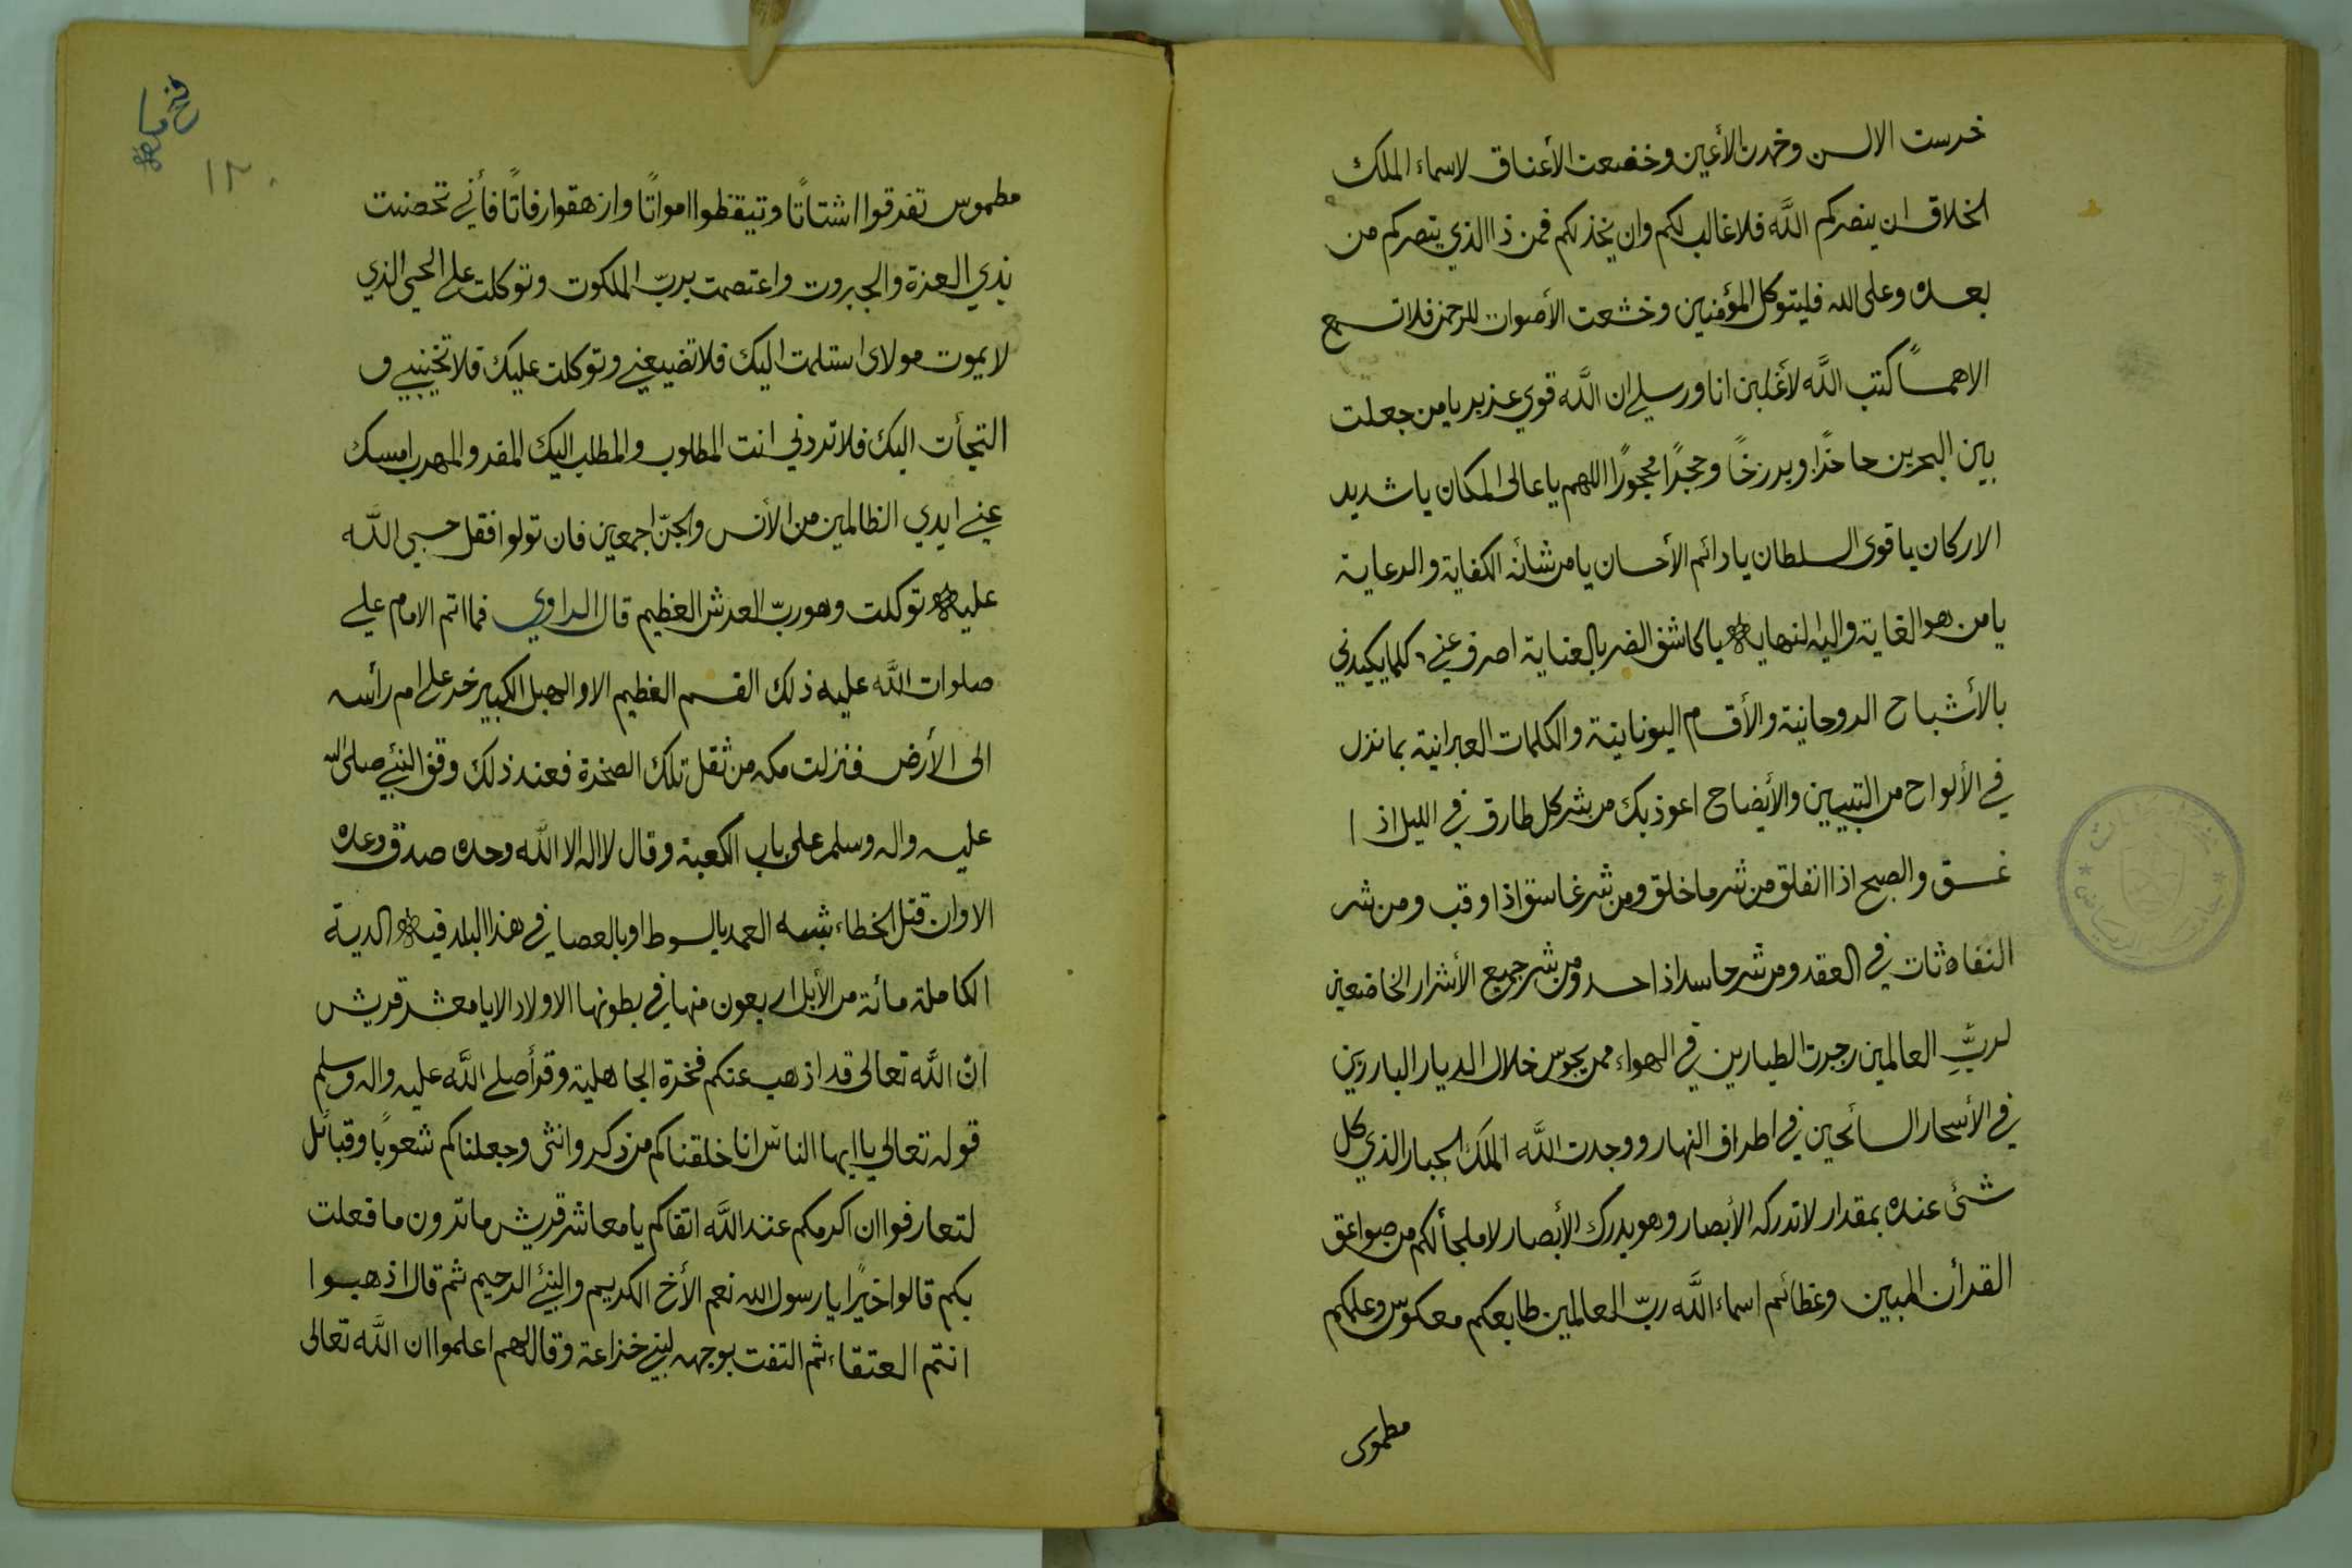 خرست الالسن وخمدت الأعين وخضعت الأعناق لاسماء الملك
الخلاق ان ينصركم اللَّه فلا غالب لكم وان يخذلكم فمن ذا الذي ينصركم من
بعده وعلى الله فليتوكل المؤمنين وخشعت الأصوات للرحمن فلا تسمع
الا همساً كتب اللَّه لأغلبن انا ورسلي ان اللَّه قوي عزيز يا من جعلت
بين البحرين حاجزًا وبرزخًا وحجرًا محجورًا اللهم يا عالى المكان يا شديد
الاركان يا قوى السلطان يا دائم الأحسان يا من شأنه الكفاية والرعاية
يا من هو الغاية واليه النهايه يا كاشف الضر بالعناية اصرف عني كلما يكيدني
بالأشباح الروحانية والأقسام اليونانية والكلمات العبرانية بما نزل
في الألواح من التبيين والأيضاح اعوذ بك من شر كل طارق في الليل اذا
غسق والصبح اذا انفلق من شر ما خلق ومن شر غاسق اذا وقب ومن شر
النفاثات في العقد ومن شر حاسد اذا حسد ومن شر جميع الأشرار الخاضعين
لربِّ العالمين زجرت الطيارين في الهواء ممن يجوس خلال الديار البارزين
في الأسحار السائحين في اطراف النهار ووجدت اللَّه الملك الجبار الذي كل
شئ عنده بمقدار لا تدركه الأبصار وهو يدرك الأبصار لا ملجأ لكم من صواعق
القرأن المبين وعظائم اسماء اللَّه ربّ العالمين طابعكم معكوس وعلمكم
مطموس
فتح مكه
١٢٠
مطموس تفرقوا اشتاتًا وتيقظوا امواتًا وازهقوا رفاتًا فأني تحصنت
بذي العزة والجبروت واعتصمت بربّ الملكوت وتوكلت على الحي الذي
لا يموت مولاى استلمت اليك فلا تضيعني وتوكلت عليك فلا تخيبني و
التجأت اليك فلا تردني انت المطلوب والمطلب اليك المفر والمهرب امسك
عني ايدي الظالمين من الأنس والجنّ اجمعين فان تولوا فقل حسبي اللَّه
عليه توكلت وهو ربّ العرش العظيم قال الراوي فما اتم الامام علي
صلوات اللَّه عليه ذلك القسم العظيم الا والهبل الكبير خر على ام رأسه
الى الأرض فنزلت مكه من ثقل تلك الصخرة فعند ذلك وقف النبي صلى الله
عليه واله وسلم على باب الكعبة وقال لا اله الا اللَّه وحده صدق وعده
الا وان قتل الخطاء شبه العمد بالسوط او بالعصا في هذا البلد فيه الدية
الكاملة مائة من الأبل اربعون منها في بطونها الاولاد الا يا معشر قريش
انّ اللَّه تعالى قد اذهب عنكم فخرة الجاهلية وقرأ صلي اللَّه عليه واله وسلم
قوله تعالى يا ايها الناس انا خلقناكم من ذكر وانثى وجعلناكم شعوبًا وقبائل
لتعارفوا ان اكرمكم عند اللَّه اتقاكم يا معاشر قريش ما ترون ما فعلت
بكم قالوا خيرًا يا رسول الله نعم الأخ الكريم والنبي الرحيم ثم قال اذهبوا
انتم العتقاء ثم التفت بوجهه لبني خزاعة وقال لهم اعلموا ان اللَّه تعالى